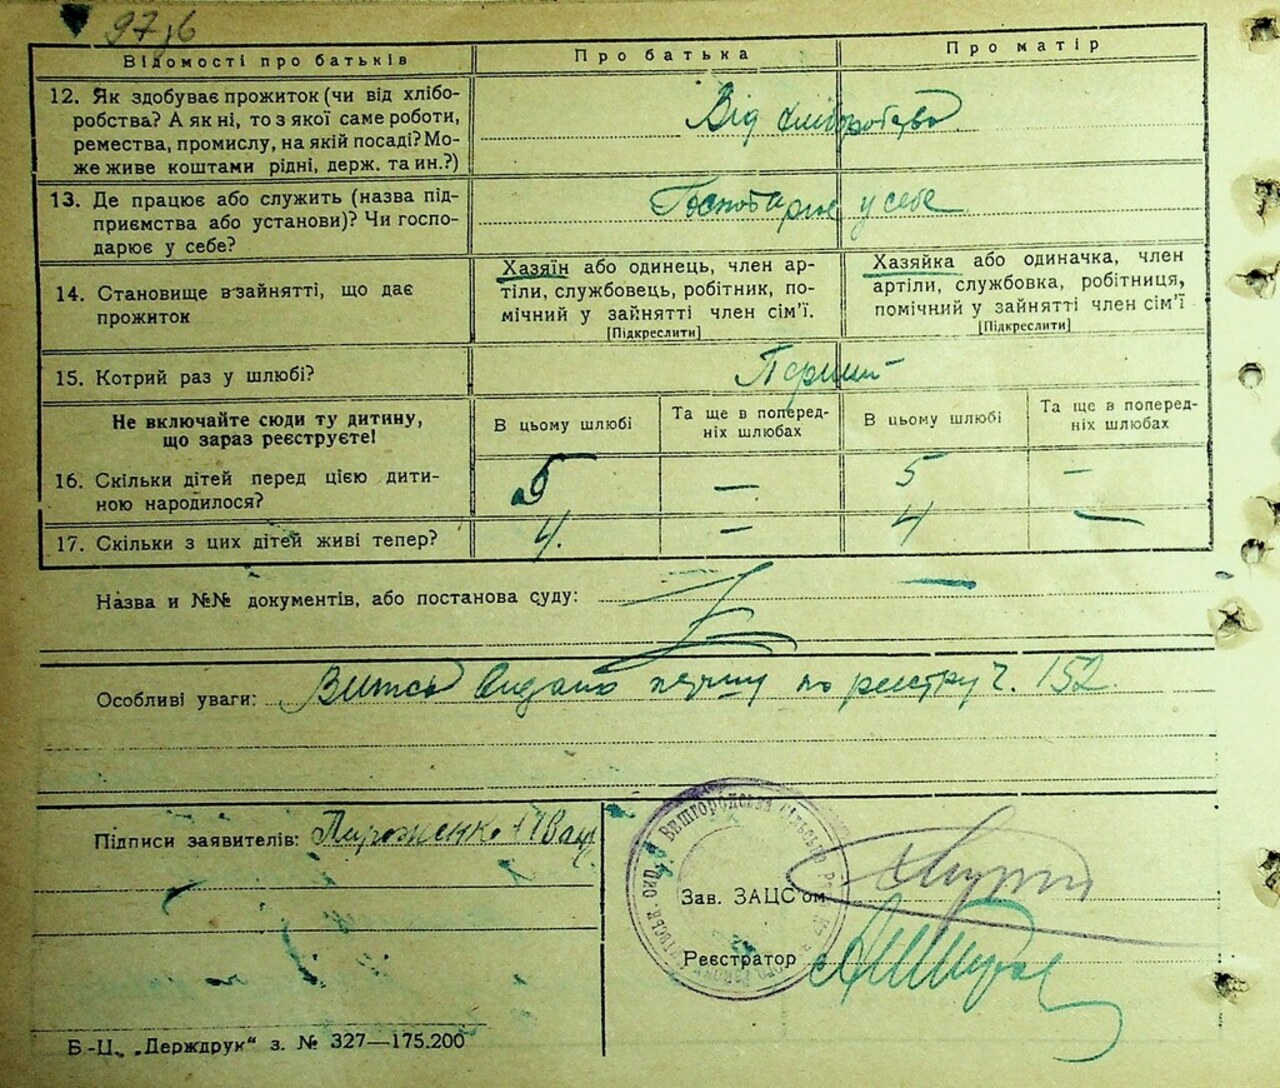 97зв
Відомості про батьків
Про батька
Про матір
12. Як здобуває прожиток (чи від хлібо-
робства? А як ні, то з якої саме роботи,
ремества, промислу, на якій посаді? Мо-
же живе коштами рідні, держ. та ин.?)
Від хліборобства
13. Де працює або служить (назва під-
приємства або установи)? Чи госпо-
дарює у себе?
Господарює у себе
14. Становище в зайнятті, що дає
прожиток
Хазяїн або одинець, член ар-
тіли, службовець, робітник, по-
мічний у зайнятті член сім'ї.
[Підкреслити]
Хазяйка або одиначка, член
артіли, службовка, робітниця,
помічний у зайнятті член сім'ї
[Підкреслити]
15. Котрий раз у шлюбі?
Перший
Не включайте сюди ту дитину,
що зараз реєструєте!
В цьому шлюбі
Та ще в поперед-
ніх шлюбах
В цьому шлюбі
Та ще в поперед-
ніх шлюбах
16. Скільки дітей перед цією дити-
ною народилося?
5 — 5 —
17. Скільки з цих дітей живі тепер?
4. — 4 —
Назва и №№ документів, або постанова суду:
Особливі уваги: Витяг видано першу по реєстру ч. 152.
Підписи заявителів: Пироженко Іван
Вишгородська сільська Рада
Зав. ЗАЦС'ом
Реєстратор
Б-Ц. „Держдрук“ з. № 327—175.200